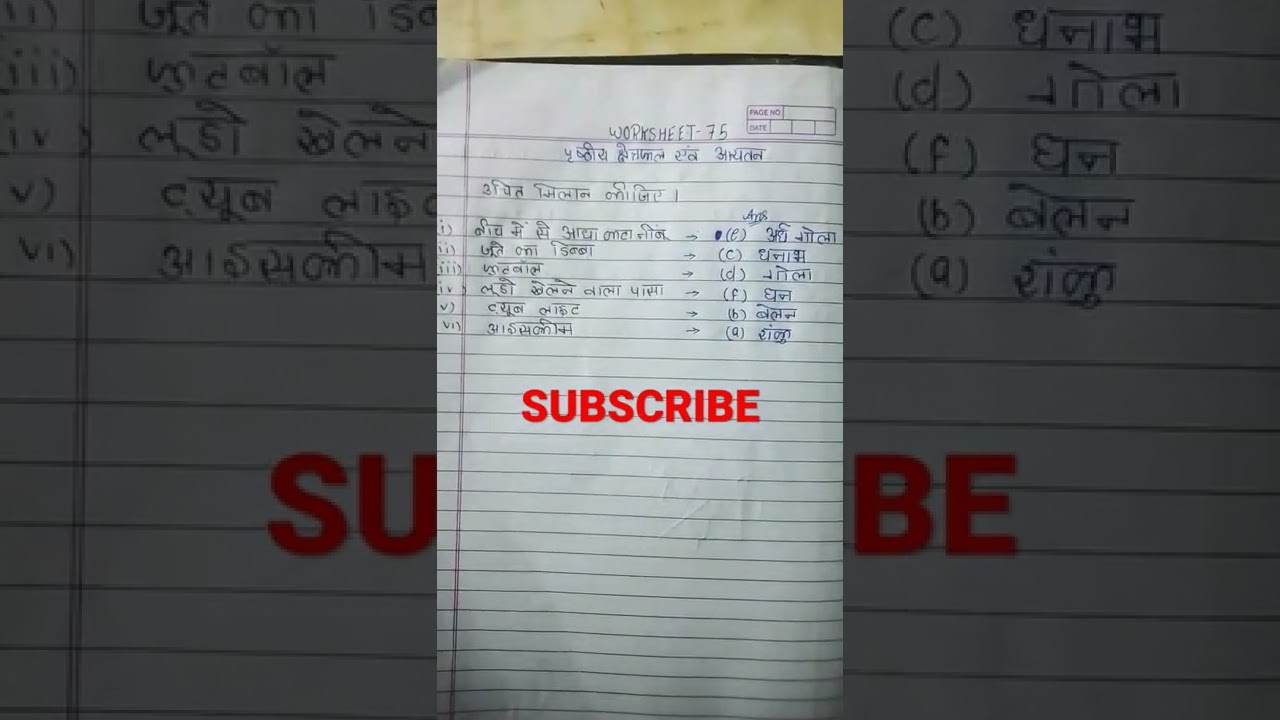 PAGE NO
DATE
WORKSHEET-75
पृष्ठीय क्षेत्रफल एंव आयतन
उचित मिलान कीजिए।
Ans
i) बीच में से आधा कटा नींबू → (e) अर्ध गोला
ii) जूते का डिब्बा → (c) घनाभ
iii) फुटबॉल → (d) गोला
iv) लूडो खेलने वाला पासा → (f) घन
v) ट्यूब लाइट → (b) बेलन
vi) आइसक्रीम → (a) शंकु
SUBSCRIBE
ii) जूते का डिब्
iii) फुटबॉल
iv) लूडो खेलने
v) ट्यूब लाइट
vi) आइसक्रीम
SU
(c) घनाभ
(d) गोला
(f) घन
(b) बेलन
(a) शंकु
BE